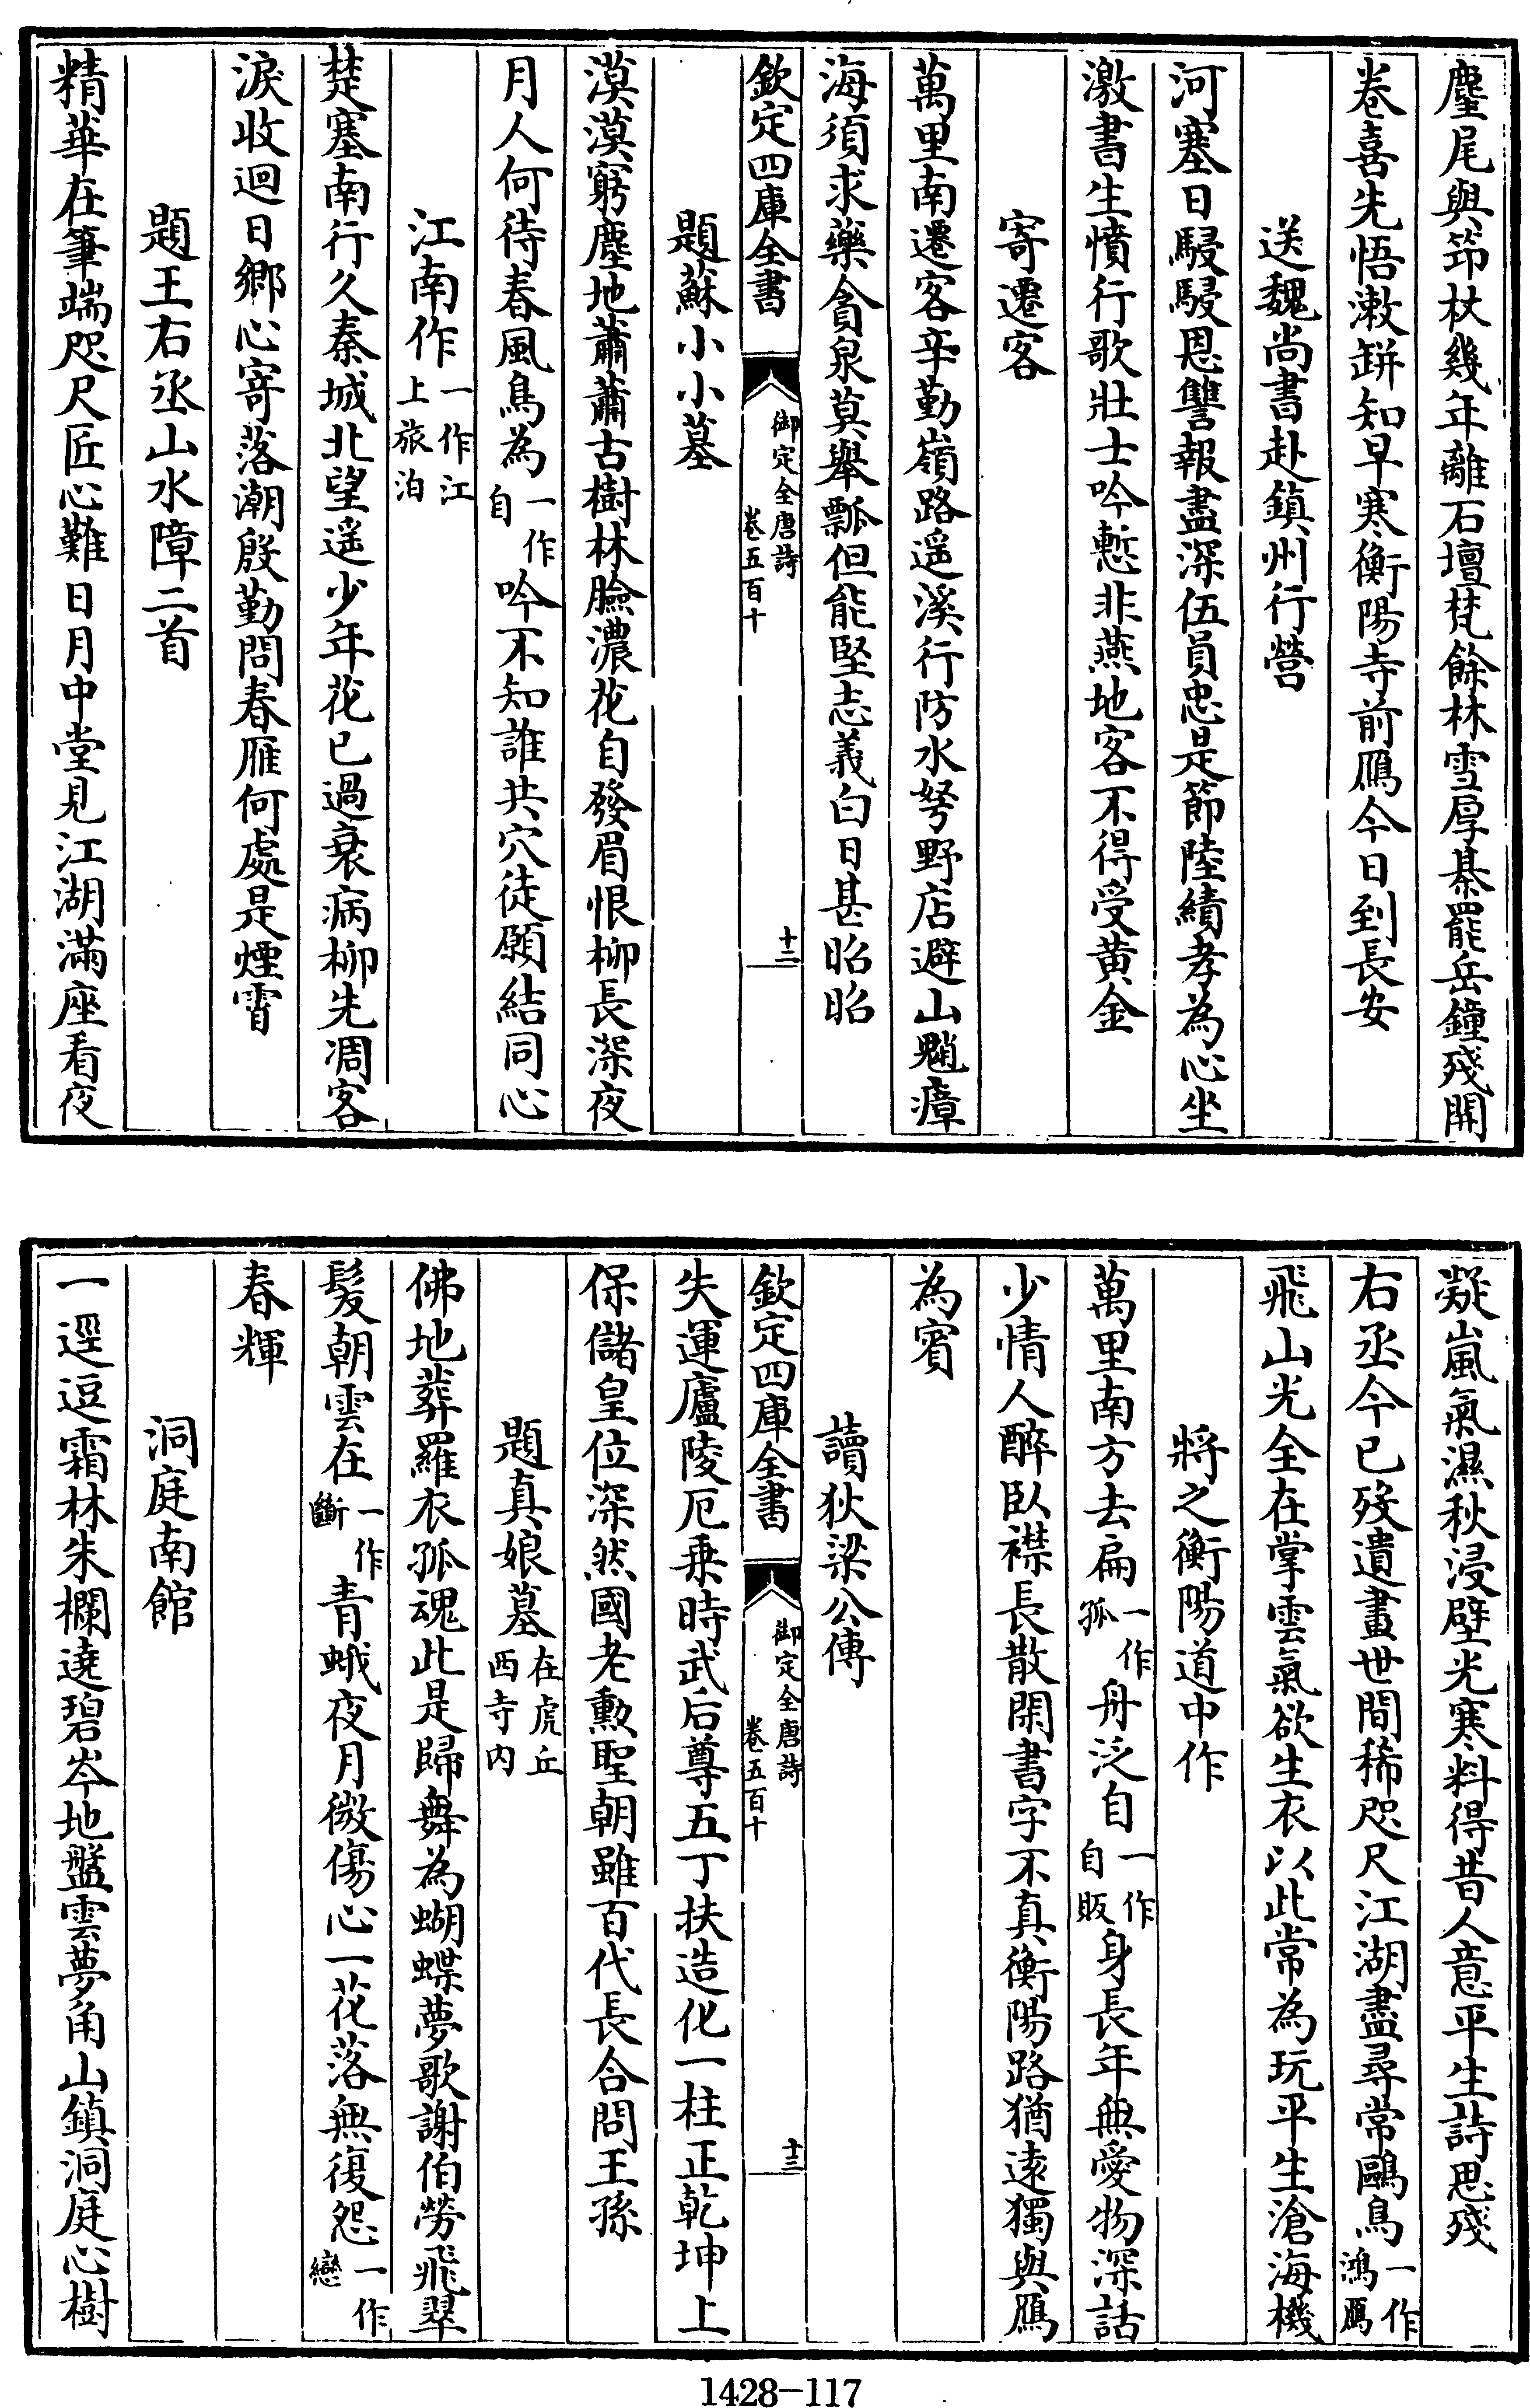 麈尾與笻杖幾年離石壇梵餘林雪厚棊罷岳鐘殘開
卷喜先悟漱缾知早寒衡陽寺前鴈今日到長安
送魏尚書赴鎮州行營
河塞日駸駸恩讐報盡深伍員忠是節陸績孝為心坐
激書生憤行歌壯士吟慙非燕地客不得受黄金
寄遷客
萬里南遷客辛勤嶺路遥溪行防水弩野店避山魈瘴
海須求藥貪泉莫舉瓢但能堅志義白日甚昭昭
欽定四庫全書
御定全唐詩
卷五百十
十二
題蘇小小墓
漠漠窮塵地蕭蕭古樹林臉濃花自發眉恨柳長深夜
月人何待春風鳥為一作自吟不知誰共穴徒願結同心
江南作一作江上旅泊
楚塞南行久秦城北望遥少年花已過衰病柳先凋客
淚收迴日鄉心寄落潮殷勤問春雁何處是煙霄
題王右丞山水障二首
精華在筆端咫尺匠心難日月中堂見江湖滿座看夜
凝嵐氣濕秋浸壁光寒料得昔人意平生詩思殘
右丞今已歿遺畫世間稀咫尺江湖盡尋常鷗鳥一作鴻鴈
飛山光全在掌雲氣欲生衣以此常為玩平生滄海機
將之衡陽道中作
萬里南方去扁一作孤舟泛自一作自販身長年無愛物深話
少情人醉臥襟長散閑書字不真衡陽路猶遠獨與鴈
為賓
讀狄梁公傳
欽定四庫全書
御定全唐詩
卷五百十
十三
失運廬陵厄乗時武后尊五丁扶造化一柱正乾坤上
保儲皇位深然國老勲聖朝雖百代長合問王孫
題真娘墓在虎丘西寺内
佛地葬羅衣孤魂此是歸舞為蝴蝶夢歌謝伯勞飛翠
髪朝雲在一作斷青蛾夜月微傷心一花落無復怨一作戀
春輝
洞庭南館
一逕逗霜林朱欄遶碧岑地盤雲夢角山鎮洞庭心樹
1428-117